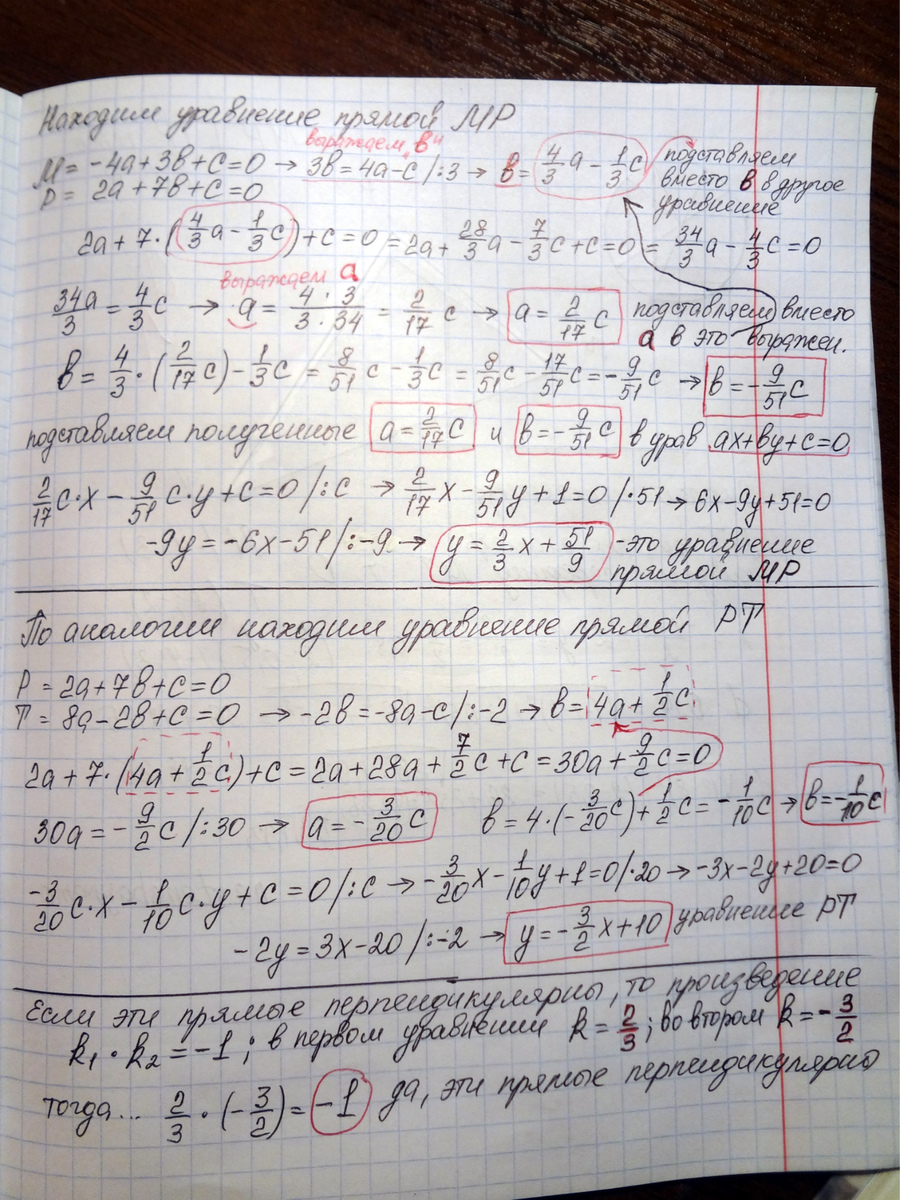 Находим уравнение прямой МР
выражаем "в"
М = -4а+3в+с=0 → 3в=4а-с /:3 → в= 4/3 а - 1/3 с
подставляем
вместо в в другое
уравнение
Р = 2а+7в+с=0
2а+7·(4/3 а - 1/3 с)+с=0 = 2а+ 28/3 а - 7/3 с+с=0 = 34/3 а - 4/3 с=0
выражаем а
34а/3 = 4/3 с → а= 4·3/3·34 = 2/17 с → а= 2/17 с
подставляем вместо
а в это выражен.
в= 4/3 · (2/17 с) - 1/3 с = 8/51 с - 1/3 с = 8/51 с - 17/51 с = - 9/51 с → в= - 9/51 с
подставляем полученные а= 2/17 с и в= - 9/51 с в урав ах+ву+с=0
2/17 с·х - 9/51 с·у+с=0 /:с → 2/17 х - 9/51 у+1=0 /·51 → 6х-9у+51=0
-9у=-6х-51 /:-9 → у= 2/3 х + 51/9 -это уравнение
прямой МР
По аналогии находим уравнение прямой РТ
Р = 2а+7в+с=0
Т = 8а-2в+с=0 → -2в=-8а-с /:-2 → в= 4а+ 1/2 с
2а+7·(4а+ 1/2 с)+с=2а+28а+ 7/2 с+с=30а+ 9/2 с=0
30а= - 9/2 с /:30 → а= - 3/20 с в=4·(- 3/20 с)+ 1/2 с= - 1/10 с → в= - 1/10 с
- 3/20 с·х - 1/10 с·у+с=0 /:с → - 3/20 х - 1/10 у+1=0 /·20 → -3х-2у+20=0
-2у=3х-20 /:-2 → у= - 3/2 х+10 уравнение РТ
Если эти прямые перпендикулярны, то произведение
k₁·k₂=-1; в первом уравнении k= 2/3; во втором k= - 3/2
тогда... 2/3 · (- 3/2)= -1 да, эти прямые перпендикулярно